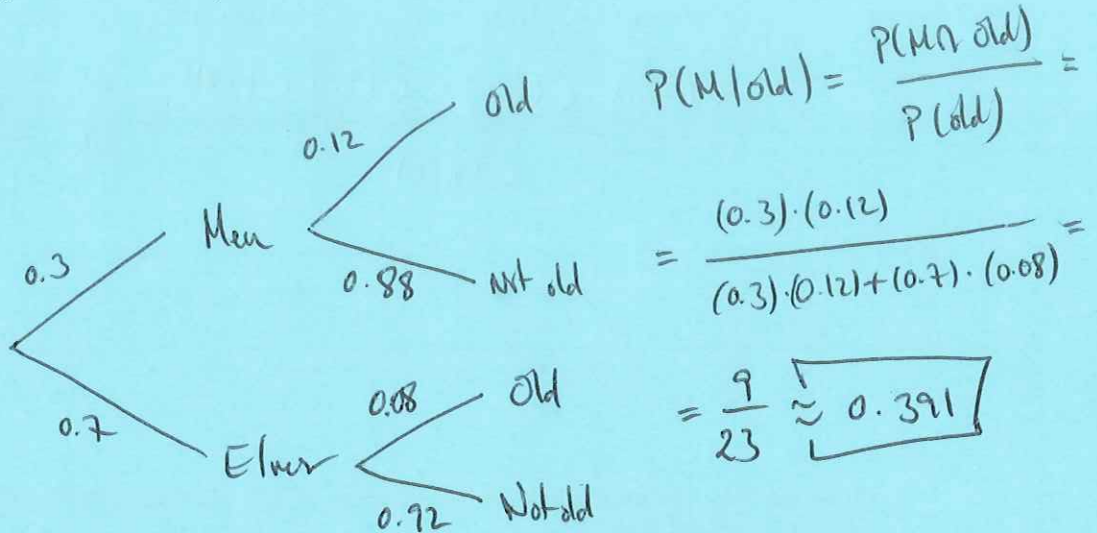 0.3
0.7
Men
0.12
Old
0.88
Not old
Elves
0.08
Old
0.92
Not old
P(M/old) = P(M∩ old) / P(old) =
= (0.3)·(0.12) / (0.3)·(0.12)+(0.7)·(0.08) =
= 9/23 ≈ 0.391